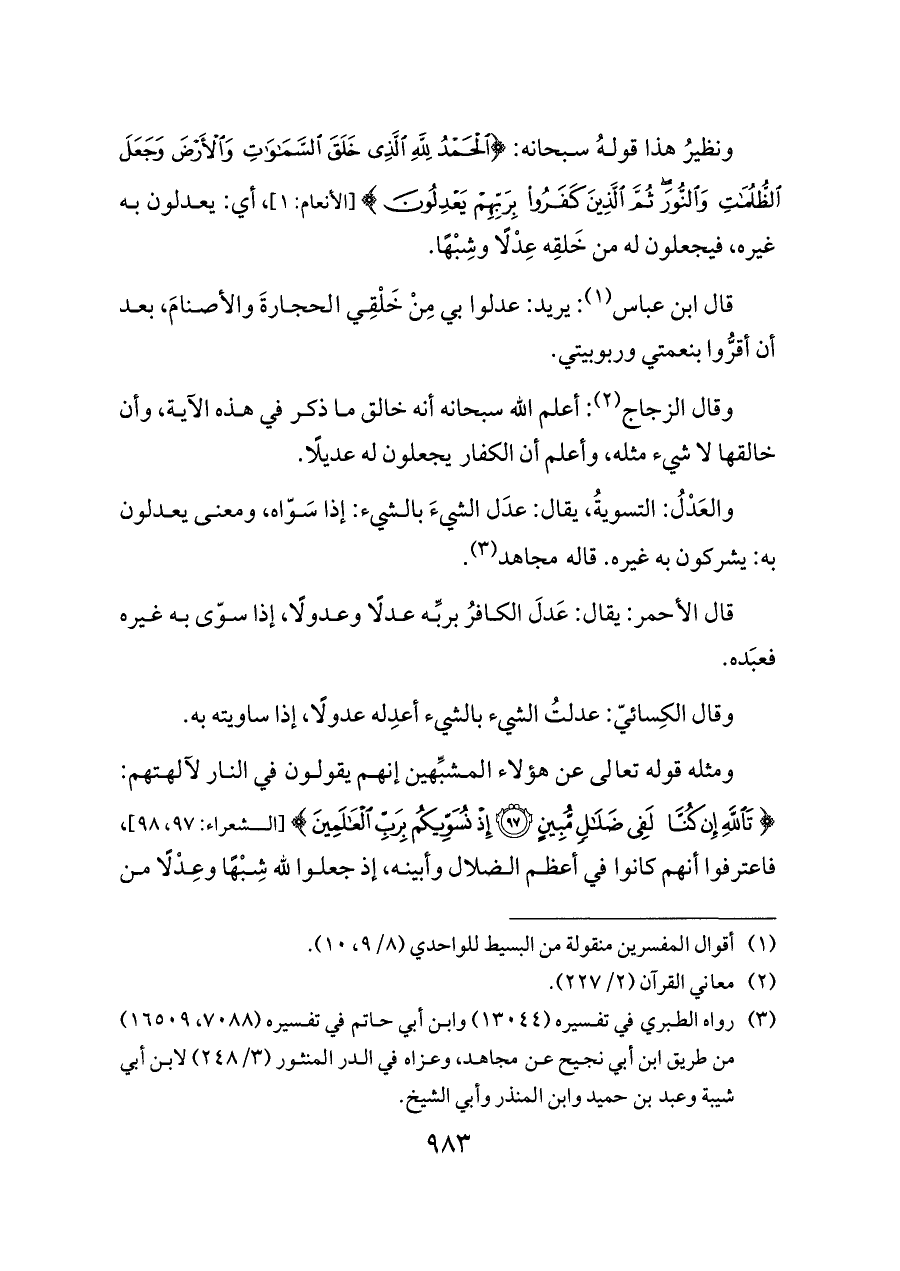 ونظيرُ هذا قولهُ سبحانه: ﴿ٱلْحَمْدُ لِلَّهِ ٱلَّذِى خَلَقَ ٱلسَّمَٰوَٰتِ وَٱلْأَرْضَ وَجَعَلَ
ٱلظُّلُمَٰتِ وَٱلنُّورَ ۖ ثُمَّ ٱلَّذِينَ كَفَرُوا۟ بِرَبِّهِمْ يَعْدِلُونَ﴾ [الأنعام: ١]، أي: يعدلون به
غيره، فيجعلون له من خَلقِه عِدْلًا وشِبْهًا.
قال ابن عباس(١): يريد: عدلوا بي مِنْ خَلْقِي الحجارةَ والأصنامَ، بعد
أن أقرُّوا بنعمتي وربوبيتي.
وقال الزجاج(٢): أعلم الله سبحانه أنه خالق ما ذكر في هذه الآية، وأن
خالقها لا شيء مثله، وأعلم أن الكفار يجعلون له عديلًا.
والعَدْلُ: التسويةُ، يقال: عدَل الشيءَ بالشيء: إذا سَوّاه، ومعنى يعدلون
به: يشركون به غيره. قاله مجاهد(٣).
قال الأحمر: يقال: عَدلَ الكافرُ بربِّه عدلًا وعدولًا، إذا سوّى به غيره
فعبَده.
وقال الكِسائيّ: عدلتُ الشيء بالشيء أعدِله عدولًا، إذا ساويته به.
ومثله قوله تعالى عن هؤلاء المشبِّهين إنهم يقولون في النار لآلهتهم:
﴿تَٱللَّهِ إِن كُنَّا لَفِى ضَلَٰلٍ مُّبِينٍ ۝٩٧ إِذْ نُسَوِّيكُم بِرَبِّ ٱلْعَٰلَمِينَ﴾ [الشعراء: ٩٧، ٩٨]،
فاعترفوا أنهم كانوا في أعظم الضلال وأبينه، إذ جعلوا لله شِبْهًا وعِدْلًا من
(١) أقوال المفسرين منقولة من البسيط للواحدي (٨/ ٩، ١٠).
(٢) معاني القرآن (٢/ ٢٢٧).
(٣) رواه الطبري في تفسيره (١٣٠٤٤) وابن أبي حاتم في تفسيره (٧٠٨٨، ١٦٥٠٩)
من طريق ابن أبي نجيح عن مجاهد، وعزاه في الدر المنثور (٣/ ٢٤٨) لابن أبي
شيبة وعبد بن حميد وابن المنذر وأبي الشيخ.
٩٨٣